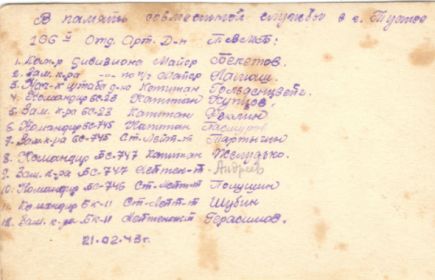 В память совместной службы в г. Туапсе
166й Отд. Арт. Д-н
1. Ком-р дивизиона Майор Бекетов.
2. Зам. к-ра по п/ч Майор
3. Нач-к штаба д-на Капитан
4. Командир БС-28 Капитан Купцов.
5. Зам. к-ра БС-28 Капитан
6. Командир БС-745 Капитан
7. Зам к-ра БС-745 Ст-Лейт-т Тартыгин
8. Командир БС-747 Капитан Желудько.
9. Зам. к-ра БС-747 Лейтен-т Андреев
10. Командир БС-746 Ст-Лейт-т Полушин
11. Командир БК-11 Ст-Лейт-т Шубин
12. Зам. к-ра БК-11 Лейтенант Герасимов.
21.02.43г.